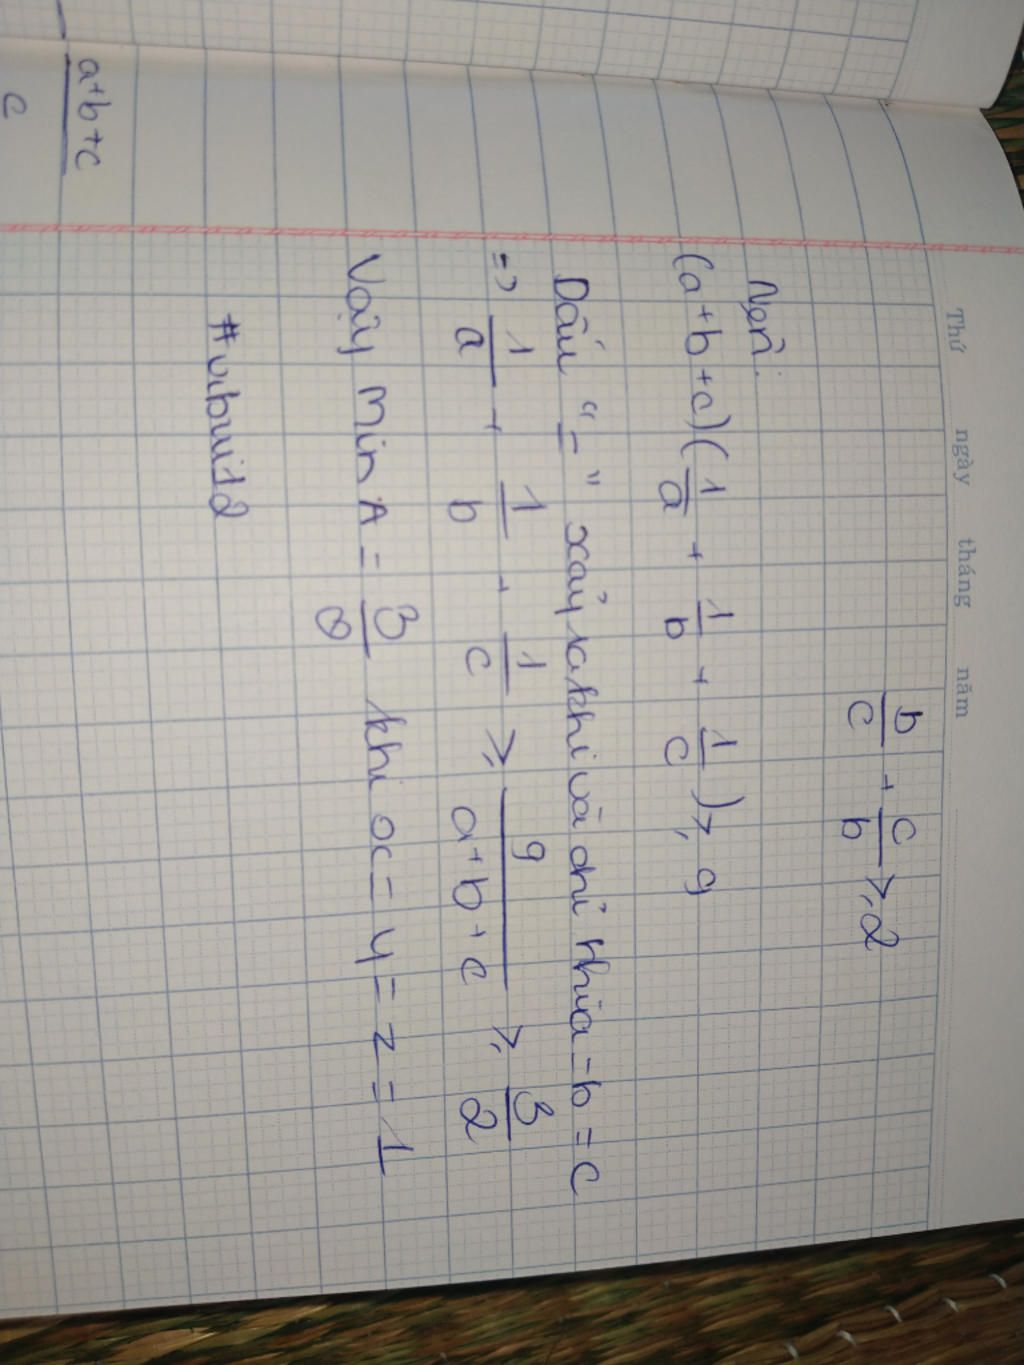 Thứ ngày tháng năm
b/c + c/b ≥ 2
Nên:
(a+b+c)(1/a + 1/b + 1/c) ≥ 9
Dấu "=" xảy ra khi và chỉ khi a=b=c
=> 1/a + 1/b + 1/c ≥ 9/(a+b+c) ≥ 3/2
Vậy Min A = 3/2 khi x=y=z=1
#vibuida
(a+b+c)/c